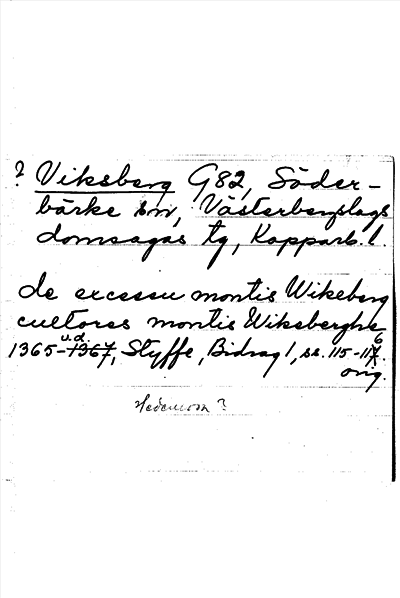 ? Viksberg G82, Söder-
bärke sn, Västerbergslags
domsagas tg, Kopparb. l.
de excessu montis Wikeberg
cultores montis Wiksberghe
u.d.
1365-1367, Styffe, Bidrag 1, ss. 115-116.
orig.
Hedemora ?